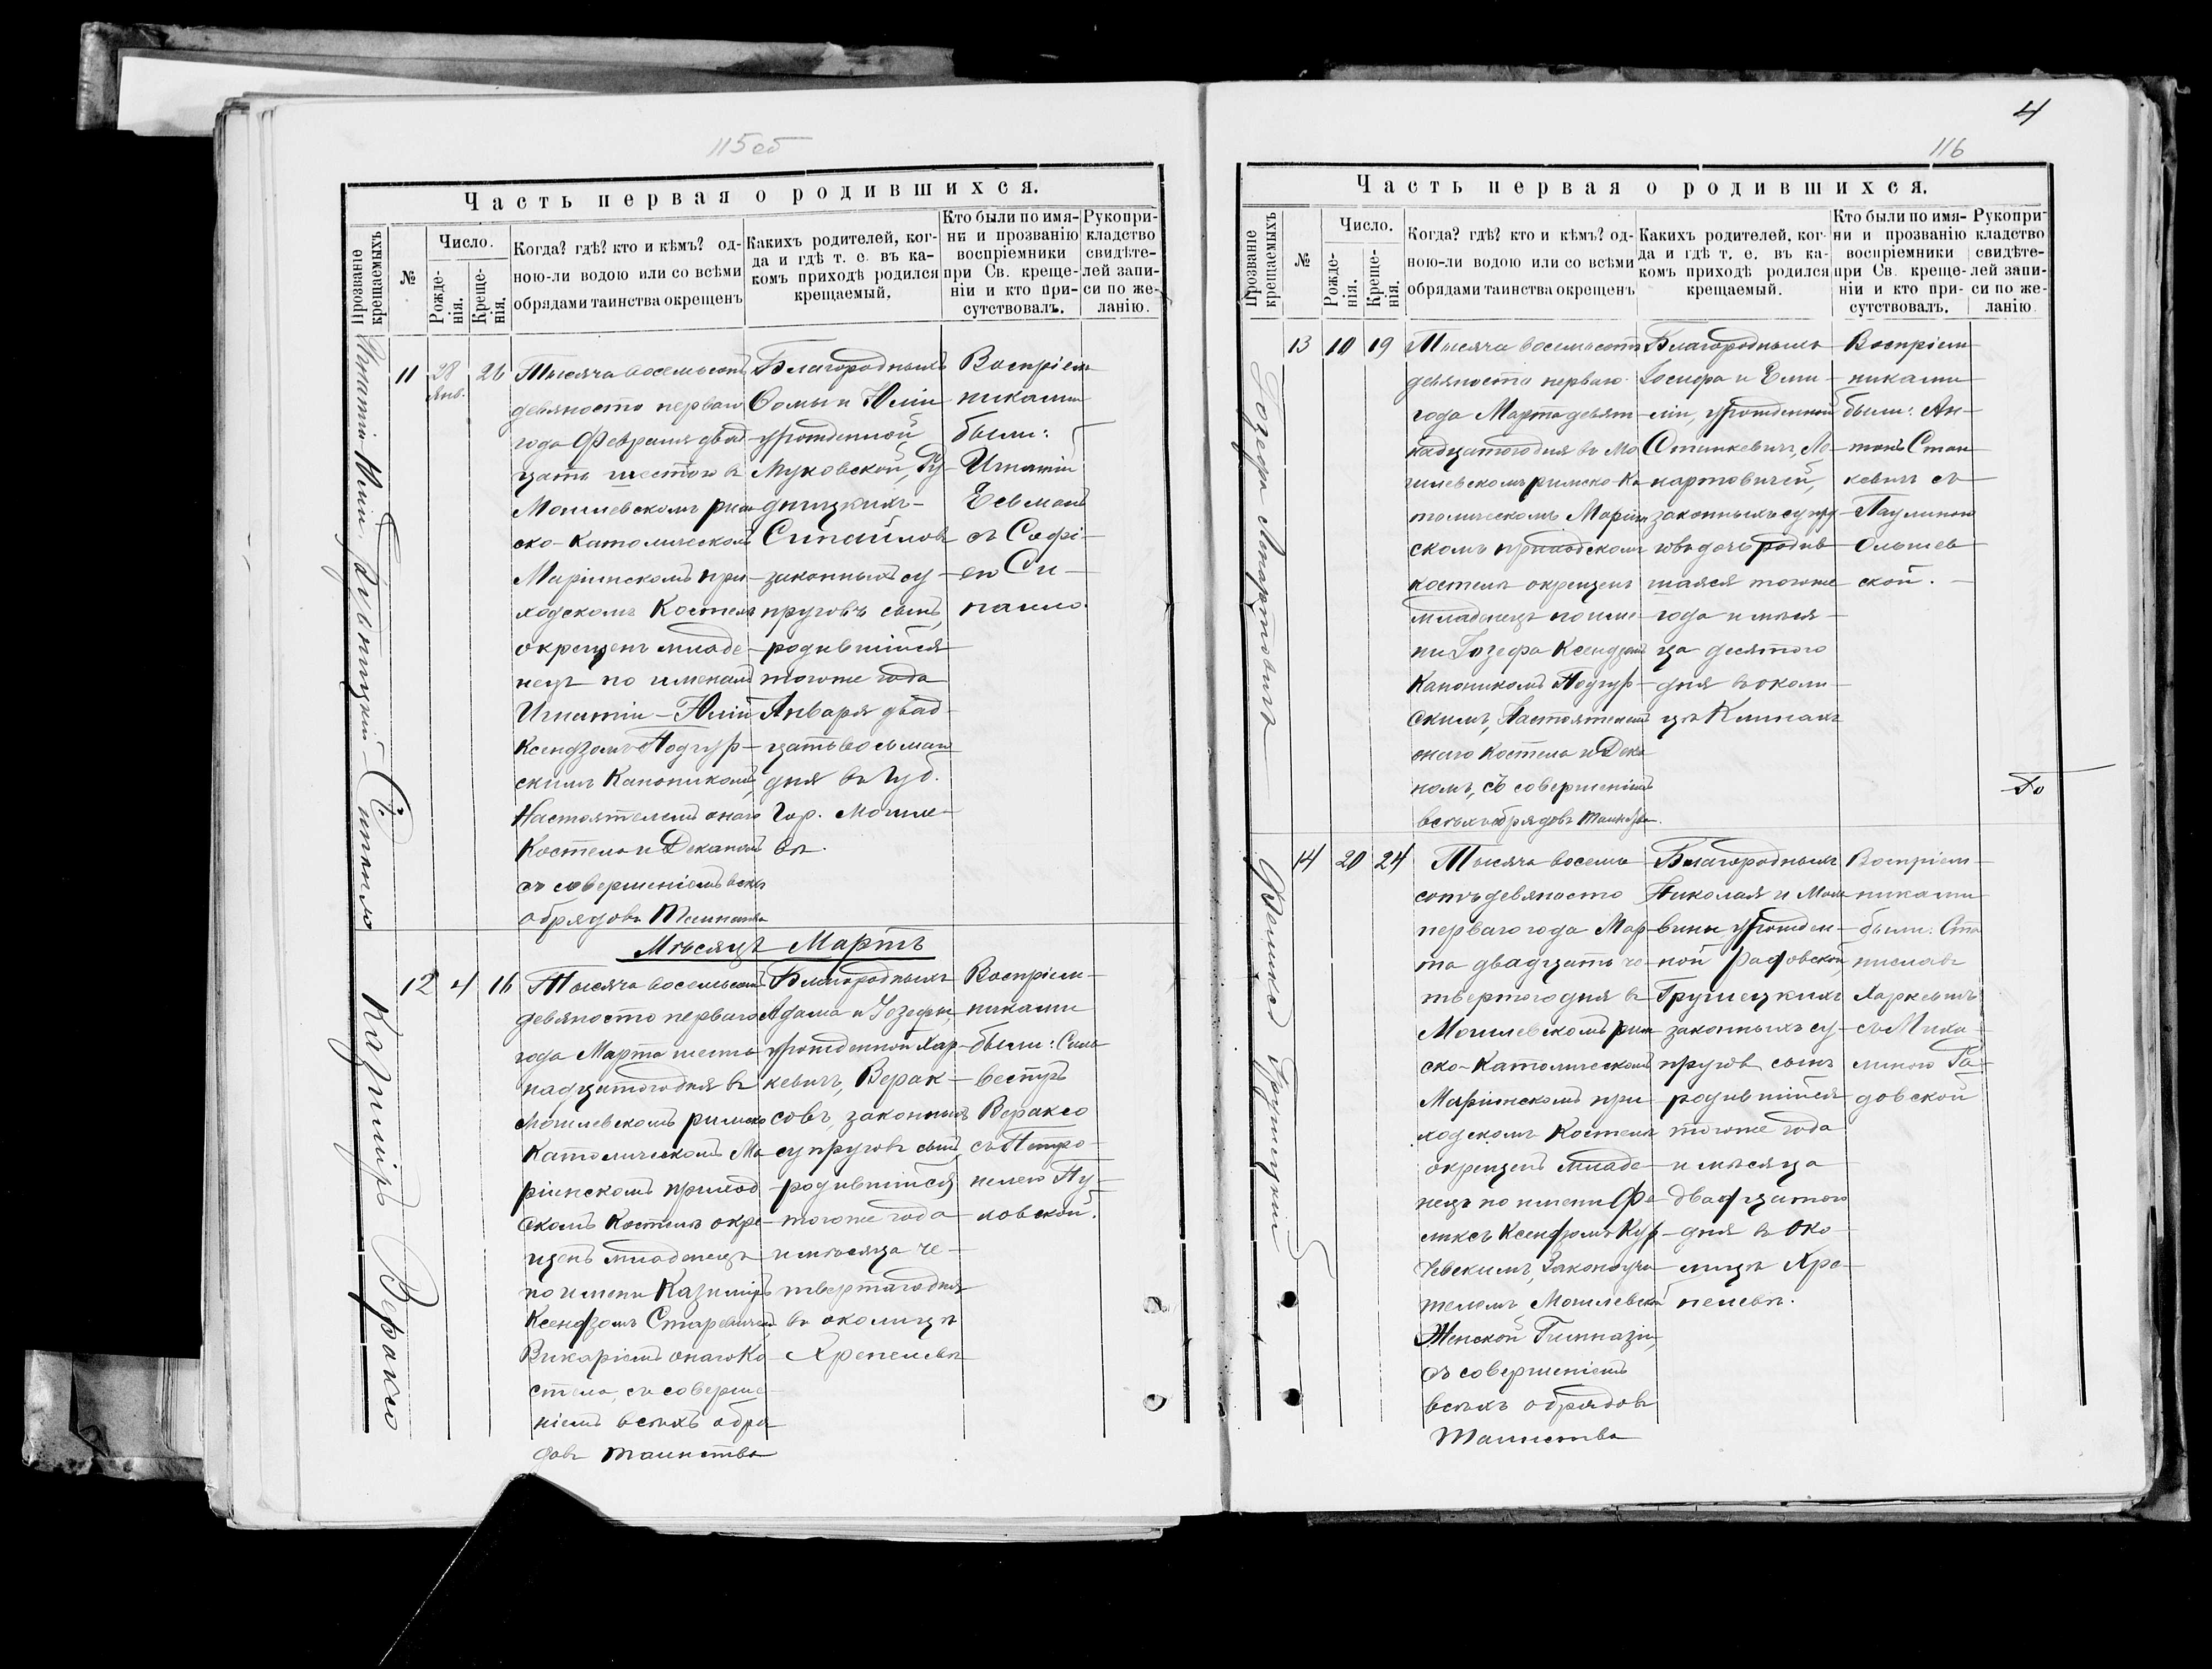 115 об
Часть первая о родившихся.
Прозваніе крещаемыхъ
№
Число.
Рожде-
нія.
Креще-
нія.
Когда? гдѣ? кто и кѣмъ? од-
ною-ли водою или со всѣми
обрядами таинства окрещенъ
Какихъ родителей, ког-
да и гдѣ т. е. въ ка-
комъ приходѣ родился
крещаемый.
Кто были по имя-
ни и прозванію
воспріемники
при Св. креще-
ніи и кто при-
сутствовалъ.
Рукопри-
кладство
свидѣте-
лей запи-
си по же-
ланію.
Игнатій Юлій Гудыницкій-Сипайло
11
28
Янв.
26
Тысяча восемьсотъ
девяносто перваго
года Февраля двад-
цать шестого въ
Могилевскомъ рим-
ско-Католическомъ
Маріинскомъ при-
ходскомъ Костелѣ
окрещенъ младе-
нецъ по именамъ
Игнатій-Юлій
Ксендзомъ Подгур-
скимъ Каноникомъ,
Настоятелемъ онаго
Костела и Деканомъ
съ совершеніемъ всѣхъ
обрядовъ Таинства
Благородныхъ
Ѳомы и Юліи
урожденной
Жуковской, Гу-
дницкихъ-
Сипайловъ
законныхъ су-
пруговъ сынъ,
родившійся
тогоже года
Января двад-
цать восьмаго
дня въ губ.
Гор. Могиле-
вѣ.
Воспріем-
никами
были:
Игнатій
Есьманъ
съ Софі-
ею Си-
пайло.
Мѣсяцъ Мартъ
Казиміръ Веракso
12
4
16
Тысяча восемьсотъ
девяносто перваго
года Марта шест-
надцатого дня въ
Могилевскомъ римско
Католическомъ Ма-
ріинскомъ приход-
скомъ Костелѣ окре-
щенъ младенецъ
по имени Казиміръ
Ксендзомъ Старевичемъ
Викаріемъ онаго Ко-
стела, съ соверше-
ніемъ всѣхъ обря-
довъ Таинства
Благородныхъ
Адама и Іозефы,
урожденной Хар-
кевичъ, Верак-
совъ, законныхъ
супруговъ сынъ,
родившійся
тогоже года
и мѣсяца че-
твертаго дня
въ околицѣ
Хрепелевѣ
Воспріем-
никами
были: Силь-
вестръ
Вераксо
съ Петро-
нелею Пу-
ховской.
4
116
Часть первая о родившихся.
Прозваніе крещаемыхъ
№
Число.
Рожде-
нія.
Креще-
нія.
Когда? гдѣ? кто и кѣмъ? од-
ною-ли водою или со всѣми
обрядами таинства окрещенъ
Какихъ родителей, ког-
да и гдѣ т. е. въ ка-
комъ приходѣ родился
крещаемый.
Кто были по имя-
ни и прозванію
воспріемники
при Св. креще-
ніи и кто при-
сутствовалъ.
Рукопри-
кладство
свидѣте-
лей запи-
си по же-
ланію.
Іозефа
13
10
19
Тысяча восемьсотъ
девяносто перваго
года Марта девят-
надцатого дня въ Мо-
гилевскомъ римско-Ка-
толическомъ Маріин-
скомъ приходскомъ
костелѣ окрещенъ
младенецъ по име-
ни Іозефа Ксендзомъ
Каноникомъ Подгур-
скимъ, Настоятелемъ
онаго Костела и Дека-
номъ, съ совершеніемъ
всѣхъ обрядовъ Таинства.
Благородныхъ
Іосифа и Еми-
ліи, урожденной
Станкевичъ,
законныхъ супру-
говъ дочь родив-
шаяся тогоже
года и мѣся-
ца десятого
дня въ околи-
цѣ Климахъ
Воспріем-
никами
были: Ан-
тонъ Стан-
кевичъ съ
Паулиною
Ольшев-
ской.
Феликсъ Грушецкій
14
20
24
Тысяча восемь-
сотъ девяносто
перваго года Мар-
та двадцать че-
твертого дня въ
Могилевскомъ рим-
ско-Католическомъ
Маріинскомъ при-
ходскомъ Костелѣ
окрещенъ младе-
нецъ по имени Фе-
ликсъ Ксендзомъ Кур-
чевскимъ, Законоучи-
телемъ Могилевской
Женской Гимназіи,
съ совершеніемъ
всѣхъ обрядовъ
Таинства
Благородныхъ
Николая и Маль-
вины урожден-
ной Радовской
Грушецкихъ
законныхъ су-
пруговъ сынъ
родившійся
тогоже года
и мѣсяца
двадцатого
дня въ Око-
лицѣ Хре-
пелевѣ.
Воспріем-
никами
были: Ста-
ниславъ
Харкевичъ
съ Миха-
линою Ра-
довской